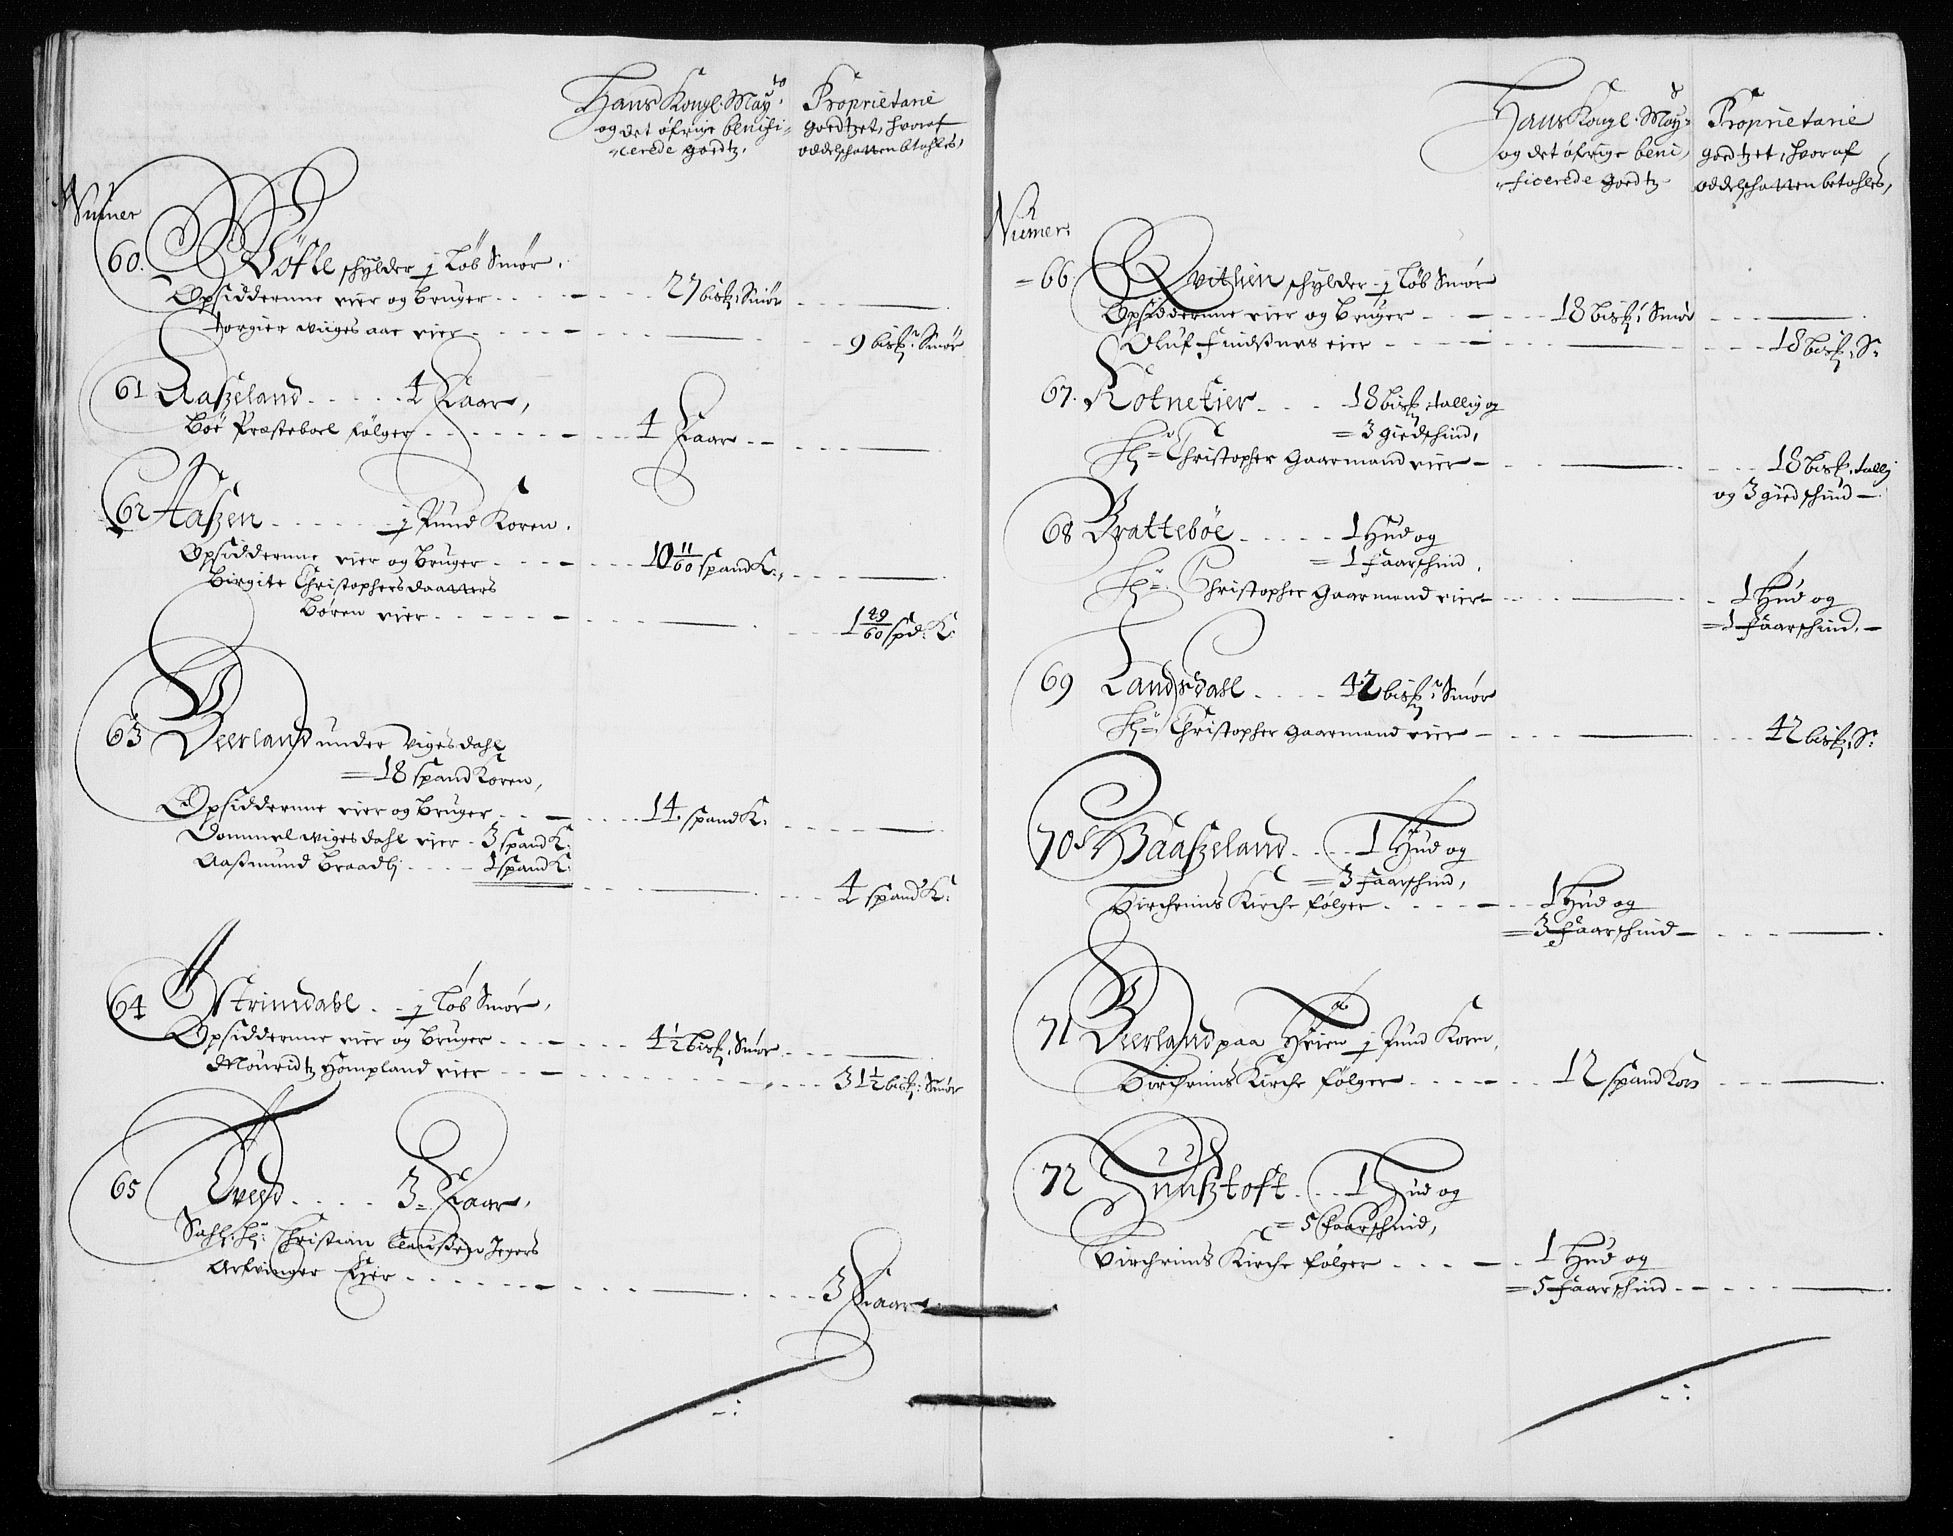 Hans Kongl. May:ts Proprietarie
og det öfrige benifi= goedtzet, hvoraf
=cerede goedtz. oddelschatten btahles,
Numer
60. Böfle schylder j Löb Smör.
Opsiddernne eier og Bruger - - - 27 bisk: Smör - - -
Torgier wiiges aae eier - - - 9 bisk: Smör
61 Aaszeland - - - 4 Kaar,
Böe Præsteboel fölger - - - 4 Kaar - -
62 Aaszen - - - j Pund Koren.
Opsidderne eier og Bruger - - - 10 11/60 spand K:
Birgite Christophersdaatters
Bören eier - - - 1 49/60 spd: K:
63 Veerland under Vigesdahl
= 18 spand Koren,
Opsidderne eier og Bruger - - - 14. spand K: - - -
Dommel wigesdahl eier - 3 spand K:
Aasmund Braadlj - - - 1 spand K:
4 spand K:
64 Östrimdahl - - j Löb Smör,
Opsidderne eier og Bruger - - - 4 1/2 bisk: Smör - - -
Mouridtz Hompland eier - - - 31 1/2 bisk: Smör
65 Qveed - - - 3 Kaar,
Sahl: Hr: Christian Claussen Jegers
Arfvinger Eier - - - 3 Kaar
Hans Kongl. May= Proprietarie
og det öfrige beni= goedtzet, hvoraf
=ficerede goedtz oddelschatten betahles,
Numer.
=66. Qvithien schylder j Löb Smör
Opsidderne eier og Bruger - - - 18 bisk: Smör - - -
Oluf Findsnes eier - - - 18 bisk: S:
67. Kotnetier - - - 18 bisk: tallig og
= 3 giedschind,
Hr: Christopher Gaarmand eier - - - 18 bisk: tallj
og 3 giedschind -
68 Brattebøe - - - 1 Hud og
= 1 Faarschind,
Hr: Christopher Gaarmand eier - - - 1 Hud og
= 1 Faarschind. -
69 Landsdahl - - - 42 bisk: Smör
Hr: Christopher Gaarmand eier - - - 42 bisk: S:
70 Haaszeland - - - 1 Hud og
= 3 Faarschind,
Birchrims Kirche fölger - - - 1 Hud og
= 3 Faarschind - - -
71 Veerland paa Heien j Pund Korn,
Birchrims Kirche fölger - - - 12 spand Korn - - -
72 Tuusztoft - - - 1 Hud og
= 5 Faarschind,
Birchrims Kirche fölger - - - 1 Hud og
= 5 Faarschind - - -